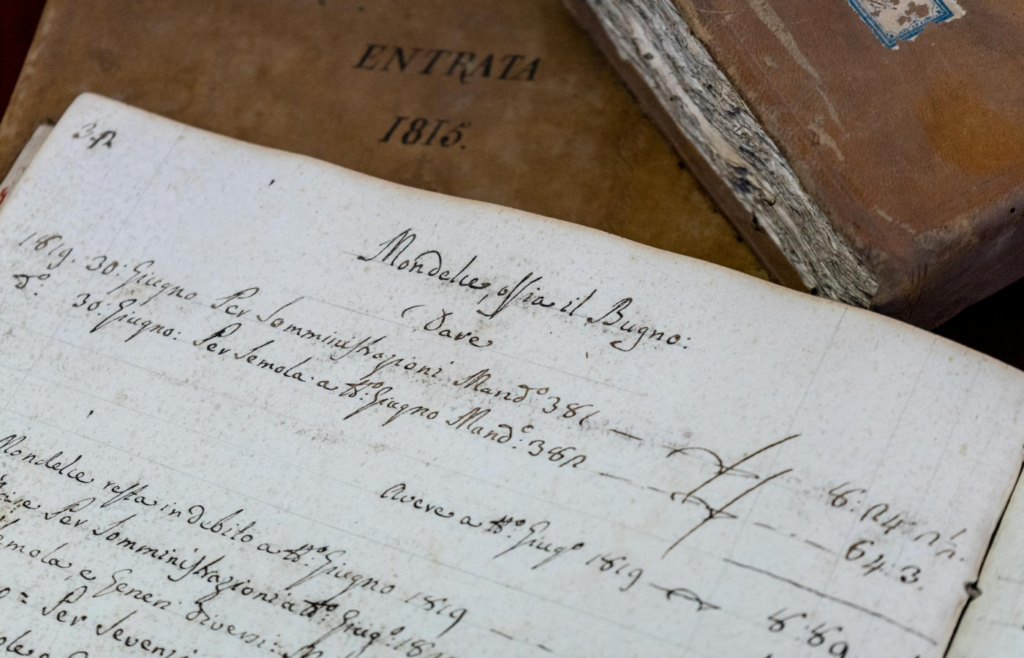 ENTRATA
1815.
Mondelce, ossia il Bugno:
Dare
1819. 30: Giugno Per Somministrazioni Mand:º 381
dº. 30: Giugno: Per Semola a tt:º Giugno Mand:º 382
64:3.
Avere a tt:º Giugº 1819
Mondelce resta in debito a tt:º Giugno 1819
Per Somministrazioni a tt:º Giugº:
Semola, e Generi diversi:
= Per